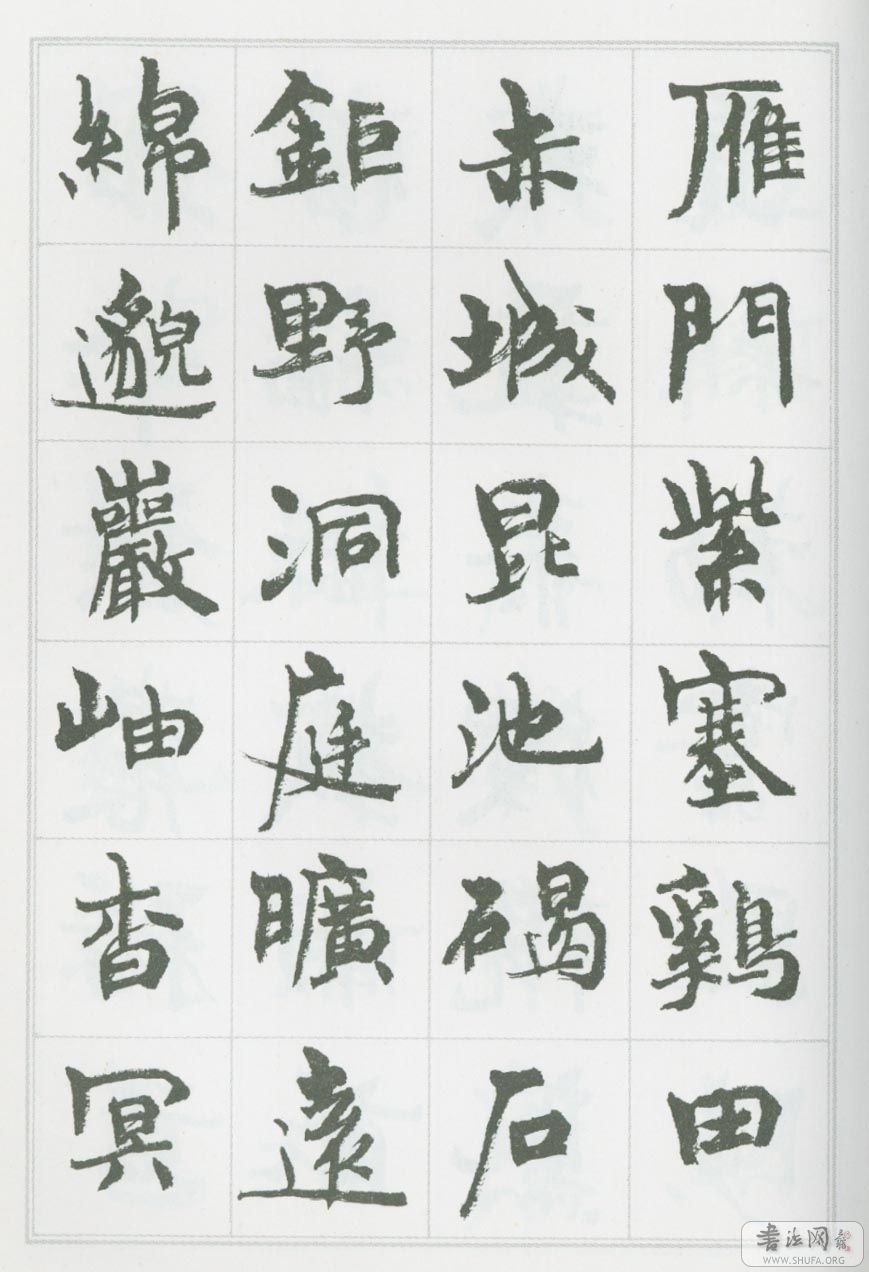 雁門紫塞鷄田
赤城昆池碣石
鉅野洞庭曠遠
綿邈巖岫杳冥
書法网
WWW.SHUFA.ORG